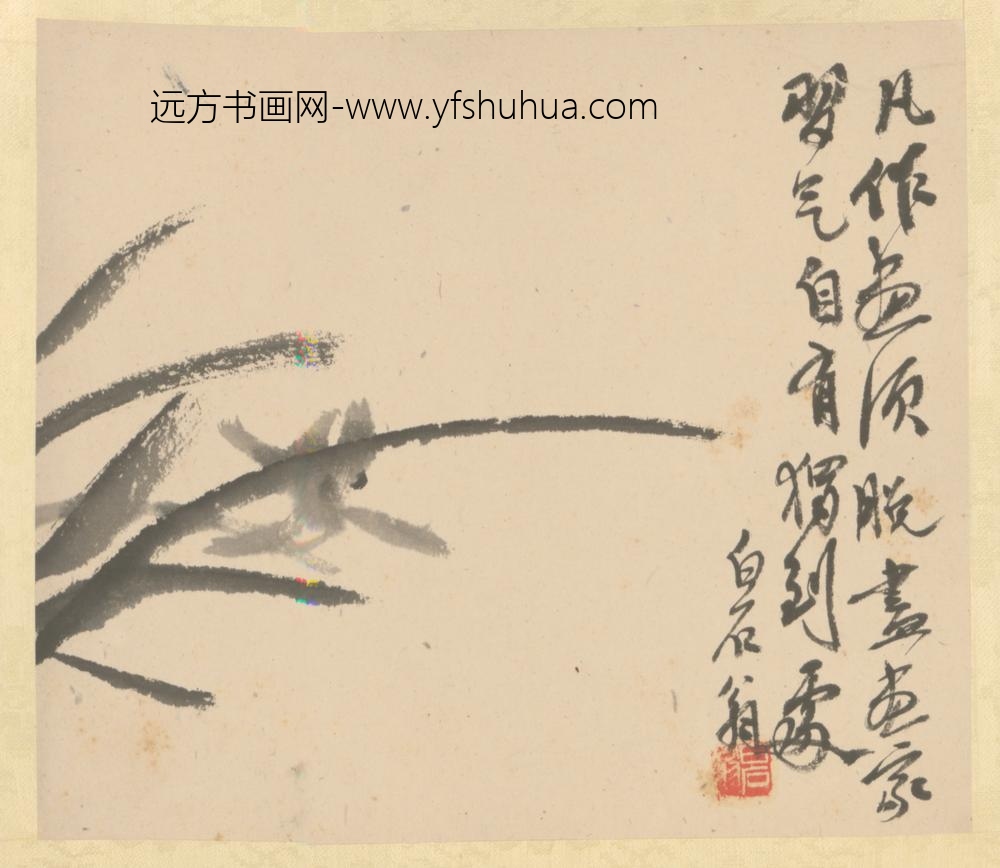 远方书画网-www.yfshuhua.com
凡作画须脱尽画家
習气自有獨到處
白石翁